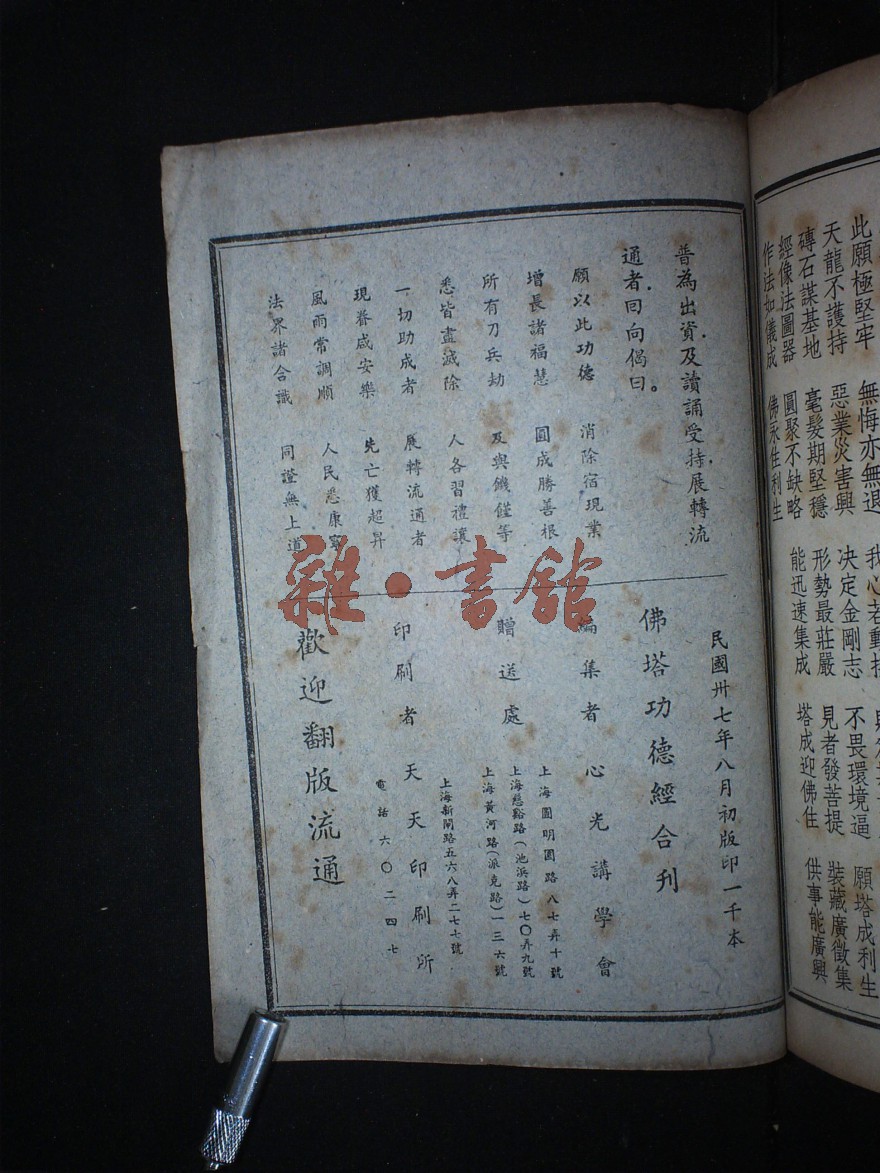 此願極堅牢 無悔亦無退
天龍不護持 惡業災害興 決定金剛志 不畏環境逼 願塔成利生
磚石謀基地 毫髮期堅穩 形勢最莊嚴 見者發菩提 裝藏廣徵集
經像法圖器 圓聚不缺略 能迅速集成 塔成迎佛住 供事能廣興
作法如儀成 佛永住利生
普為出資及讀誦受持展轉流
通者回向偈曰。
願以此功德 消除宿現業
增長諸福慧 圓成勝善根
所有刀兵劫 及與饑饉等
悉皆盡滅除 人各習禮讓
一切助成者 展轉流通者
現眷咸安樂 先亡獲超昇
風雨常調順 人民悉康寧
法界諸含識 同證無上道
民國卅七年八月初版印一千本
佛塔功德經合刊
編集者 心光講學會
贈送處
上海圓明園路八七弄十號
上海慈谿路(池浜路)七〇弄九號
上海黃河路(派克路)一三六號
印刷者 天天印刷所
上海新閘路五六八弄二七七號
電話 六〇二四七
歡迎翻版流通
雜·書館